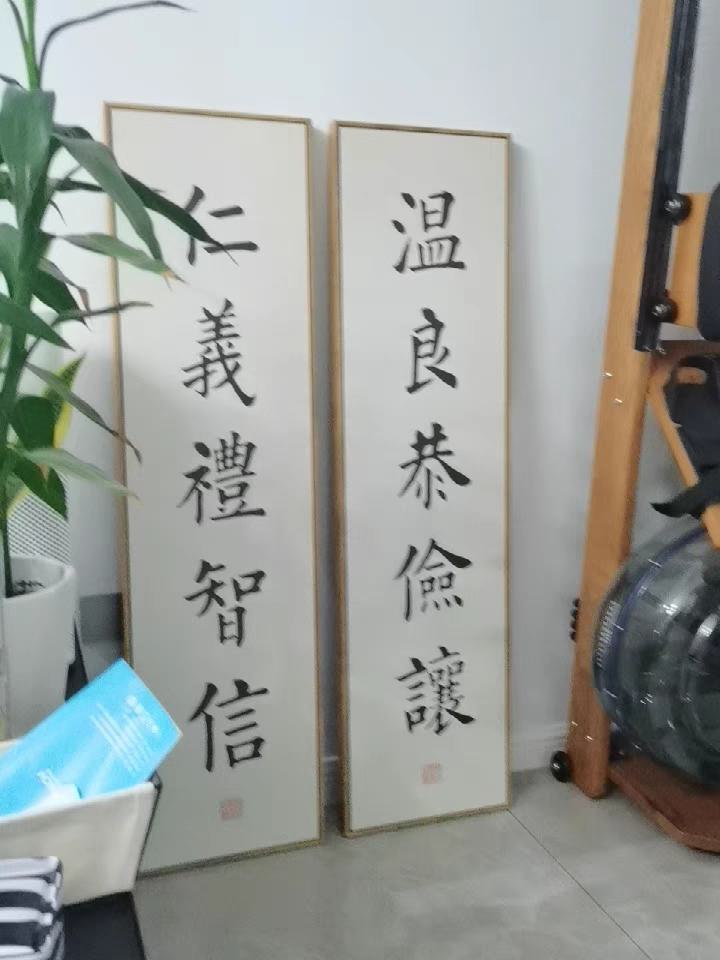 仁義禮智信
温良恭儉讓